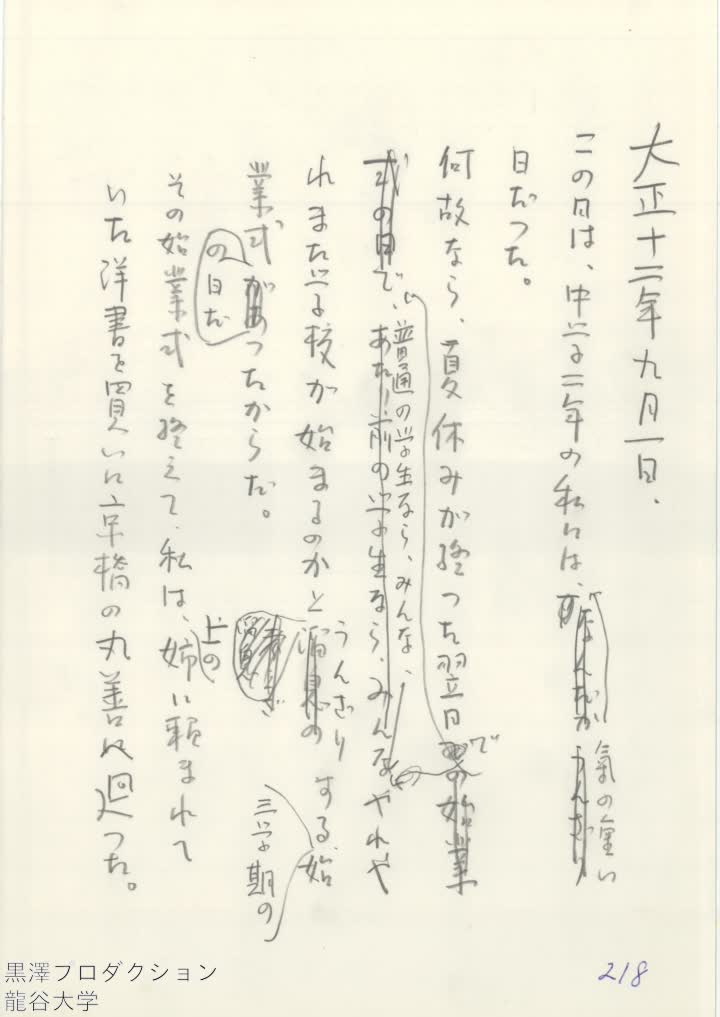 大正十二年九月一日、
この日は、中学二年の私には、なんだか うんざり 氣の重い
日だった。
何故なら、夏休みが終った翌日で の始業
式の日で、あたり前の学生なら、みんなやれや
普通の学生なら、みんな、
れまた学校が始まるのかと溜息の うんざり する、始
二学期の
業式があったからだ。
の日だ
その始業式を終えて、私は、上の姉に頼まれて
いた洋書を買いに京橋の丸善へ廻った。
218
黒澤フロダクション
龍谷大学